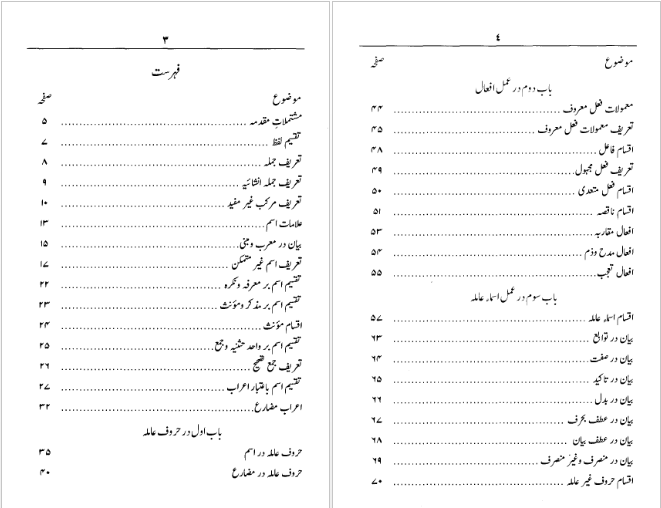 ۳
فہرست
موضوع صفحہ
مشتملاتِ مقدمہ ۵
تقسیم لفظ ۷
تعریف جملہ ۸
تعریف جملہ انشائیہ ۹
تعریف مرکب غیر مفید ۱۰
علامات اسم ۱۳
بیان در معرب و مبنی ۱۵
تعریف اسم غیر متمکن ۱۷
تقسیم اسم بر معرفہ و نکرہ ۲۲
تقسیم اسم بر مذکر و مؤنث ۲۳
اقسام مؤنث ۲۴
تقسیم اسم بر واحد تثنیہ و جمع ۲۵
تعریف جمع تصحیح ۲۶
تقسیم اسم باعتبار اعراب ۲۷
اعراب مضارع ۳۲
باب اول در حروف عاملہ
حروف عاملہ در اسم ۳۵
حروف عاملہ در مضارع ۴۰
۴
موضوع صفحہ
باب دوم در عمل افعال
معمولات فعل معروف ۴۴
تعریف معمولات فعل معروف ۴۵
اقسام فاعل ۴۸
تعریف فعل مجہول ۴۹
اقسام فعل متعدی ۵۰
اقسام ناقصہ ۵۱
افعال مقاربہ ۵۳
افعال مدح و ذم ۵۴
افعال تعجب ۵۵
باب سوم در عمل اسماء عاملہ
اقسام اسماء عاملہ ۵۷
بیان در توابع ۶۳
بیان در صفت ۶۴
بیان در تاکید ۶۵
بیان در بدل ۶۶
بیان در عطف بحرف ۶۷
بیان در عطف بیان ۶۸
بیان در منصرف و غیر منصرف ۶۹
اقسام حروف غیر عاملہ ۷۰